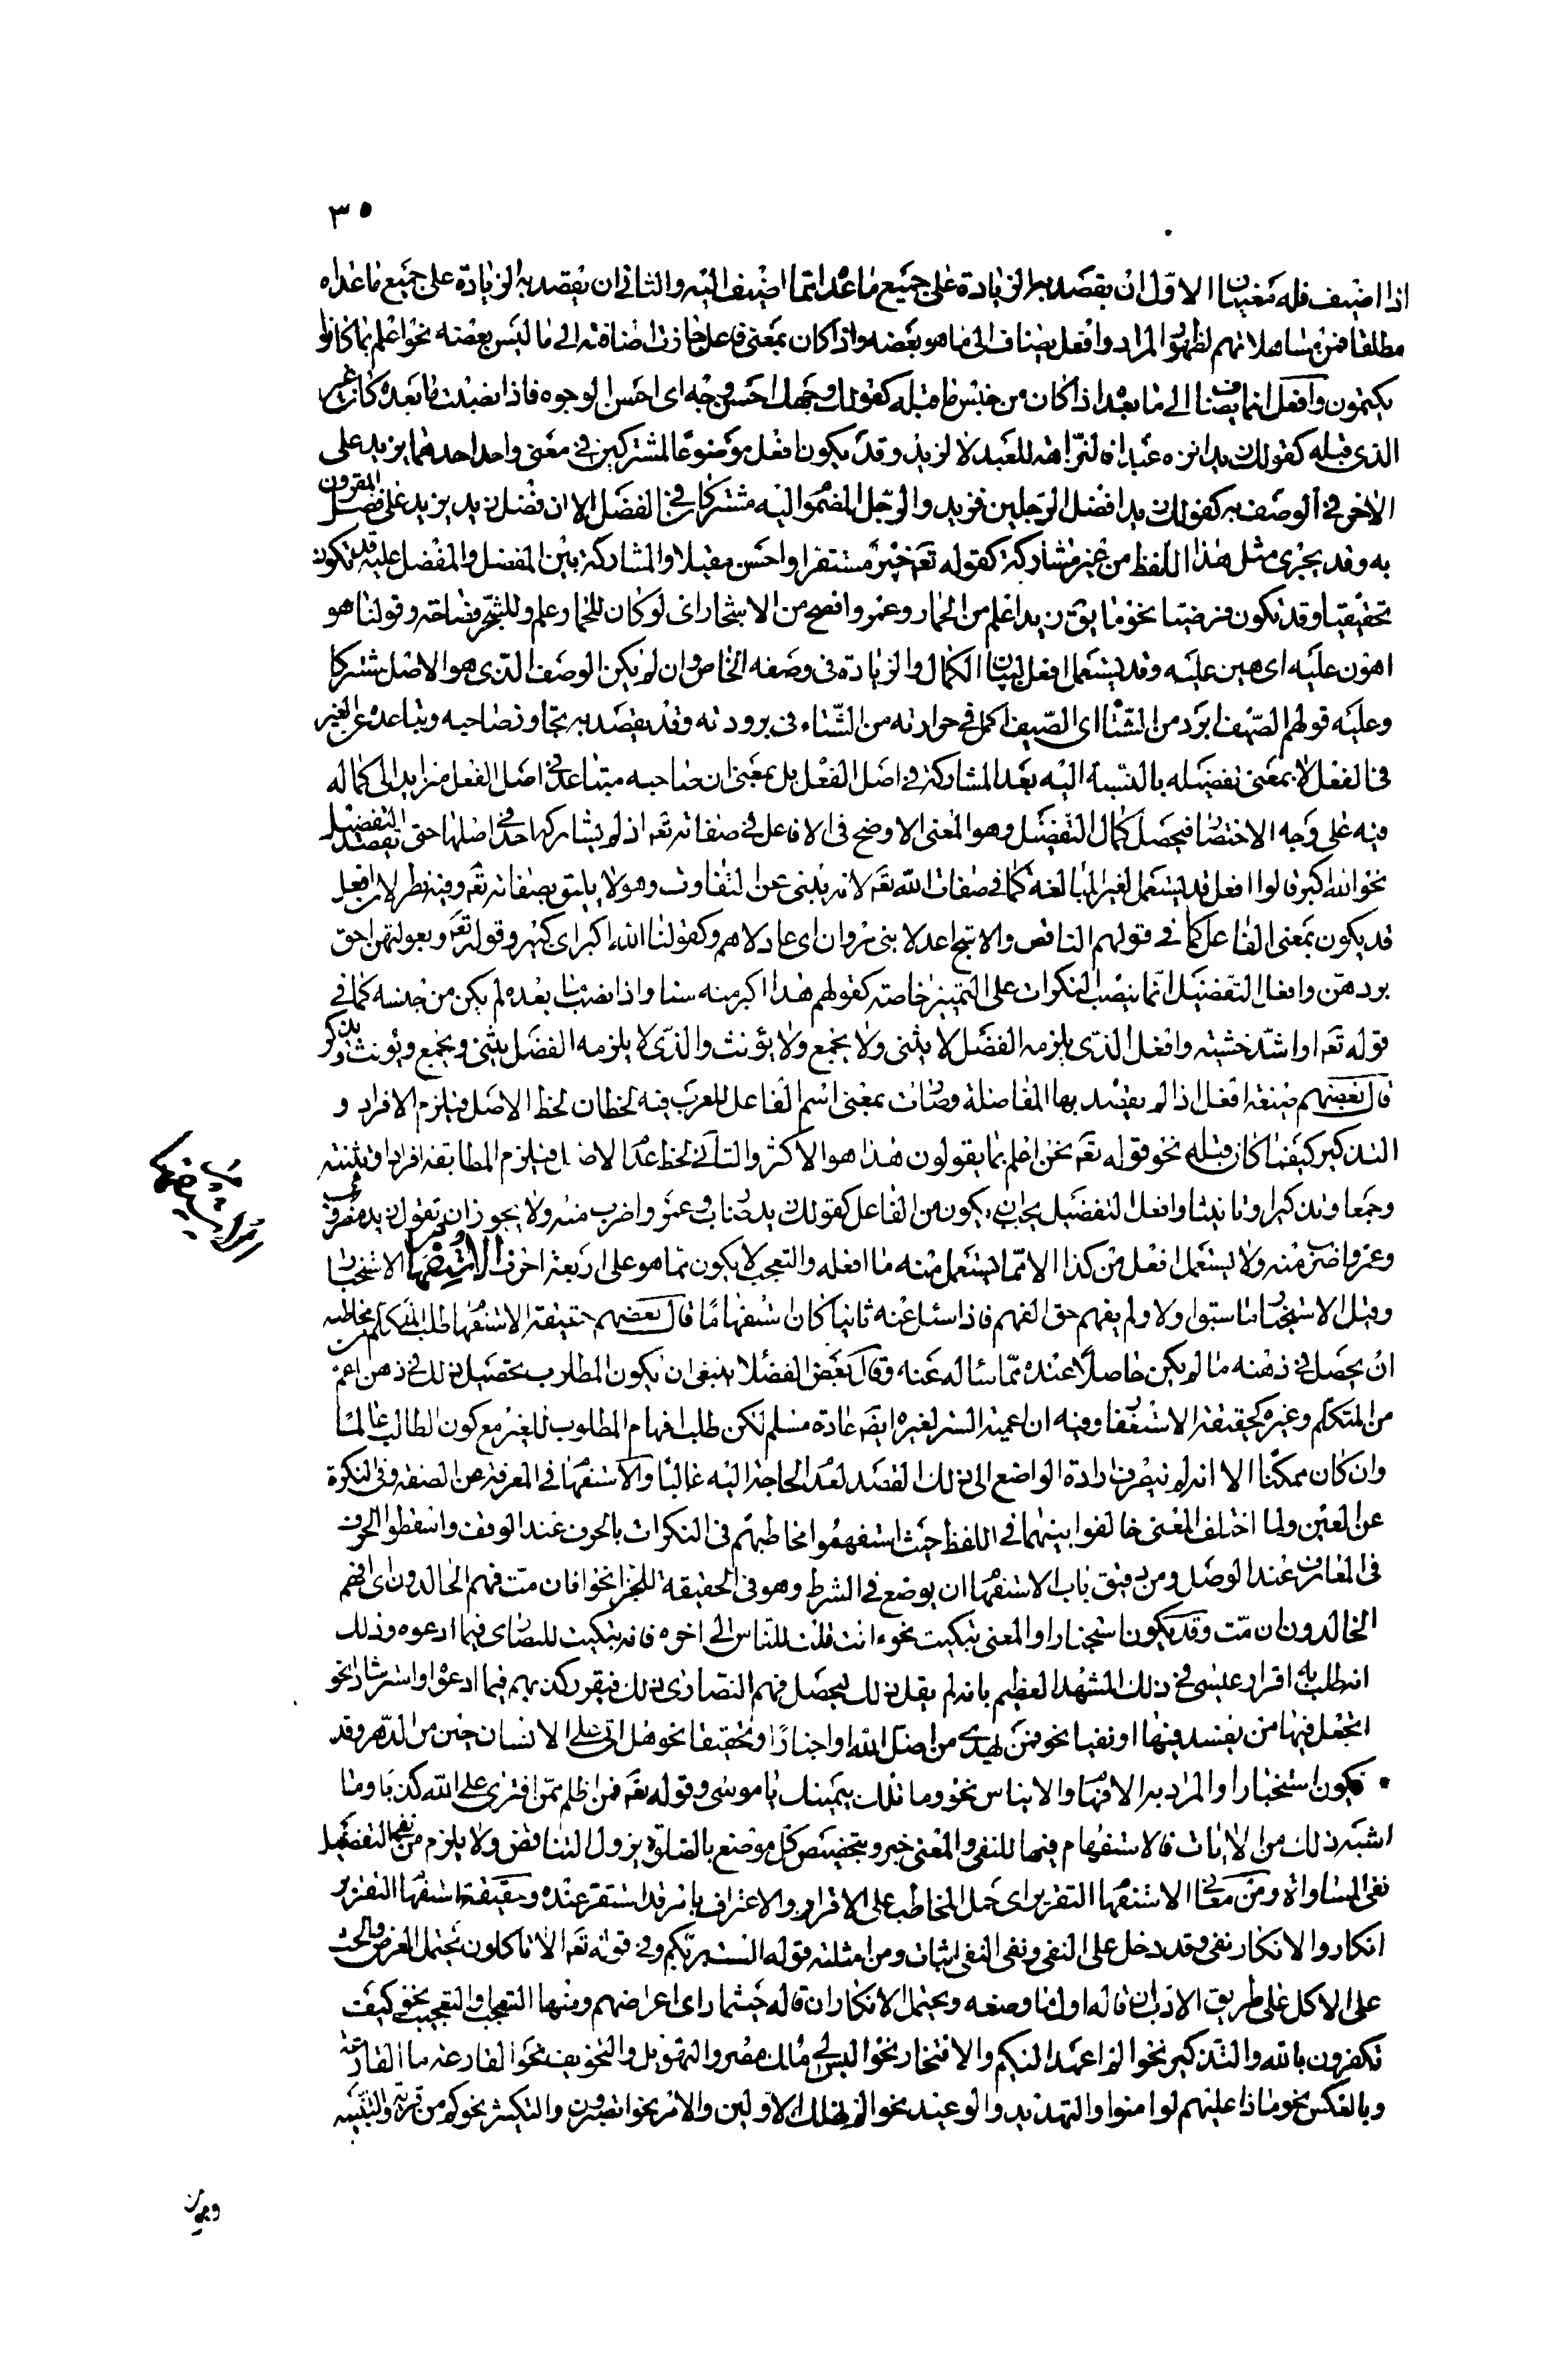 ٣٥
اذا اضيف فله معنيان الاول ان يقصد به الزيادة على جميع ما عداه مما اضيف اليه والثانى ان يقصد به الزيادة على جميع ما عداه
مطلقا فمن تساهلاتهم لظهور المراد وافعل يضاف الى ما هو بعضه واذا كان بمعنى فاعل جازت اضافته الى ما ليس بعضه نحو اعلم بما كانوا
يكتمون وافعل انما يضاف الى ما بعده اذا كان من جنس ما قبله كقولك وجهك احسن وجه اى احسن الوجوه فاذا نصبت ما بعده كان غير
الذى قبله كقولك زيد انزه عبدا فالنزاهة للعبد لا لزيد وقد يكون افعل موضوعا لمشتركين فى معنى واحد احدهما يزيد على
الآخر فى الوصف به كقولك زيد افضل الرجلين فزيد والرجل المضموم اليه مشتركان فى الفضل الا ان فضل زيد يزيد على فضل المقرون
به وقد يجرى مثل هذا اللفظ من غير مشاركة كقوله تعم خير مستقرا واحسن مقيلا والمشاركة بين المفضل والمفضل عليه قد تكون
تحقيقيا وقد تكون فرضيا نحو ما يق زيد اعلم من الحمار وعمرو افصح من الاشجار اى لو كان للحمار علم وللشجر فصاحة وقولنا هو
اهون عليه اى هين عليه وقد يستعمل افعل لبيان الكمال والزيادة فى وصفه الخاص وان لم يكن الوصف الذى هو الاصل مشتركا
وعليه قولهم الصيف ابرد من الشتاء اى الصيف اكمل فى حرارته من الشتاء فى برودته وقد يقصد به تجاوز صاحبه وتباعده عن الغير
فى الفعل لا بمعنى تفضيله بالنسبة اليه بعد المشاركة فى اصل الفعل بل بمعنى ان صاحبه متباعد فى اصل الفعل متزايد الى كماله
فيه على وجه الاختصا فيحصل كمال التفضيل وهو المعنى الاوضح فى الافاعل فى صفاته تعم اذ لم يشاركه احد فى اصلها حتى يقصد التفضيل
نحو الله اكبر قالوا افعل قد يستعمل لغير المبالغة كما فى صفات الله تعم لانه ينبى عن التفاوت وهو لا يليق بصفاته تعم وفيه نظر لان افعل
قد يكون بمعنى الفاعل كما فى قولهم الناقص والاشج اعدلا بنى مروان اى عادلاهم وكقولنا الله اكبر اى كبير وقوله تعم وبعولتهن احق
بردهن وافعل التفضيل انما ينصب النكرات على التمييز خاصة كقولهم هذا اكبر منه سنا واذا نصب ما بعده لم يكن من جنسه كما فى
قوله تعم او اشد خشية وافعل الذى يلزمه الفضل لا يثنى ولا يجمع ولا يؤنث والذى لا يلزمه الفضل يثنى ويجمع ويؤنث ويذكر
قال بعضهم صيغة افعل اذا لم يقصد بها المفاضلة وصارت بمعنى اسم الفاعل للعرب فيه لحظان لحظ الاصل فيلزم الافراد و
التذكير كيفما كان قبله نحو قوله تعم نحن اعلم بما يقولون هذا هو الاكثر والثانى لحظ عدم الاصل فيلزم المطابقة افرادا وتثنية
وجمعا وتذكيرا وتانيثا وافعل التفضيل يجب ان يكون من الفاعل كقولك زيد ضارب وعمرو اضرب منه ولا يجوز ان تقول زيد مضروب
وعمرو اضرب منه ولا يستعمل افعل من كذا الا مما يستعمل منه ما افعله والتعجب لا يكون مما هو على اربعة احرف الاستفهام الاستخبار
وقيل الاستخبار ما سبق اولا ولم يفهم حق الفهم فاذا سئل عنه ثانيا كان استفهاما قال بعضهم حقيقة الاستفهام طلب المتكلم من مخاطبه
ان يحصل فى ذهنه ما لم يكن حاصلا عنده مما ساله عنه وقال بعض الفضلا ينبغى ان يكون المطلوب تحصيل ذلك فى ذهن اعم
من المتكلم وغيره كحقيقة الاستغفا وفيه ان اعمية الستر لغيره ايضم عادة مسلم لكن طلب افهام المطلوب للغير مع كون الطالب عالما
وان كان ممكنا الا انه لم يتصرف ارادة الواضع الى ذلك القصد لعدم الحاجة اليه غالبا والاستفهام فى المعرفة عن الصفة وفى النكرة
عن العين ولما اختلف المعنى خالفوا بينهما فى اللفظ حيث استفهموا مخاطبهم فى النكرات بالحرف عند الوقف واسقطوا الحرف
فى المعارف عند الوصل ومن دقيق باب الاستفهام ان يوضع فى الشرط وهو فى الحقيقة للجزا نحو افان مت فهم الخالدون اى افهم
الخالدون ان مت وقد يكون استخبارا والمعنى تبكيت نحو ءانت قلت للناس الى اخره فانه تبكيت للنصارى فيما ادعوه وذلك
انه طلب به اقرار عيسى فى ذلك المشهد العظيم بانه لم يقل ذلك ليحصل فهم النصارى ذلك فيقرر كذبهم فيما ادعوا او استرشادا نحو
اتجعل فيها من يفسد فيها او نفيا نحو فمن يهدى من اضل الله او اخبارا وتحقيقا نحو هل اتى على الانسان حين من الدهر وقد
يكون استخبارا والمراد به الافهام والايناس نحو وما تلك بيمينك يا موسى وقوله تعم فمن اظلم ممن افترى على الله كذبا وما
اشبه ذلك من الايات فالاستفهام فيها للنفى والمعنى خبر وبتخصيص كل موضع بالصلة يزول التناقض ولا يلزم من نفى التفضيل
نفى المساواة ومن معانى الاستفهام التقرير اى حمل المخاطب على الاقرار والاعتراف بامر قد استقر عنده وحقيقة استفهام التقرير
انكار والانكار نفى وقد دخل على النفى ونفى النفى اثبات ومن امثلته قوله الست بربكم وفى قوله تعم الا تاكلون يحتمل العرض والحث
على الاكل على طريق الادب ان قاله اول ما وضعه ويحتمل الانكار ان قاله حيثما راى اعراضهم ومنها التعجب والتعجيب نحو كيف
تكفرون بالله والتذكير نحو الم اعهد اليكم والافتخار نحو اليس لى ملك مصر والتهويل والتخويف نحو القارعة ما القارعة
وبالعكس نحو ماذا عليهم لو امنوا والتهديد والوعيد نحو الم نهلك الاولين والامر نحو اتصبرون والتكثير نحو كم من قرية والتنبيه